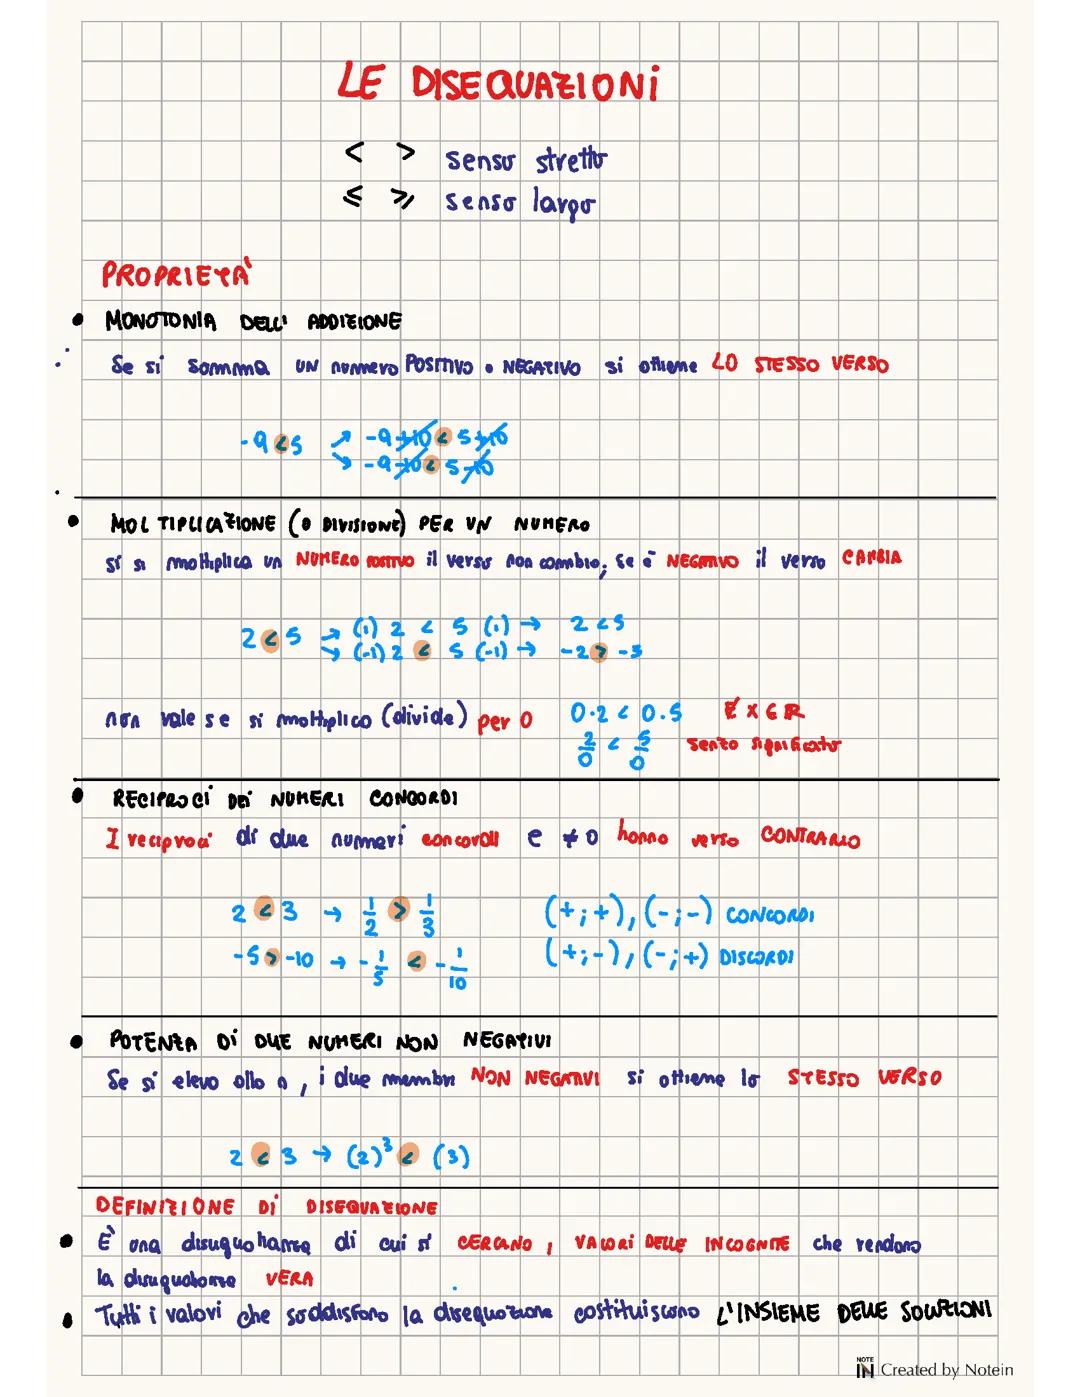 LE DISEQUAZIONI
< > senso stretto
⩽ ⩾ senso largo
PROPRIETÀ
• MONOTONIA DELL' ADDIZIONE
Se si somma UN numero POSITIVO o NEGATIVO si ottiene LO STESSO VERSO
-9 < 5 ↗ -9+10 < 5+10
↘ -9-10 < 5-10
• MOLTIPLICAZIONE (o DIVISIONE) PER UN NUMERO
si si moltiplica un NUMERO POSITIVO il verso non cambio; se è NEGATIVO il verso CAMBIA
2 < 5 → (1) 2 < 5 (1) → 2 < 5
↘ (-1) 2 < 5 (-1) → -2 > -5
non vale se si moltiplico (divide) per 0 0·2 < 0·5 ∄ x ∈ R
2/0 < 5/0 senzo significato
• RECIPROCI DEI NUMERI CONCORDI
I reciproci di due numeri concordi e ≠ 0 hanno verso CONTRARIO
2 < 3 → 1/2 > 1/3 (+;+), (-;-) CONCORDI
-5 > -10 → -1/5 < -1/10 (+;-), (-;+) DISCORDI
• POTENZA DI DUE NUMERI NON NEGATIVI
Se si elevo allo n, i due membri NON NEGATIVI si ottiene lo STESSO VERSO
2 < 3 → (2)³ < (3)
DEFINIZIONE DI DISEQUAZIONE
• È una disuguaglianza di cui si CERCANO i VALORI DELLE INCOGNITE che rendono
la disuguaglianza VERA
• Tutti i valori che soddisfano la disequazione costituiscono L'INSIEME DELLE SOLUZIONI
NOTE IN Created by Notein